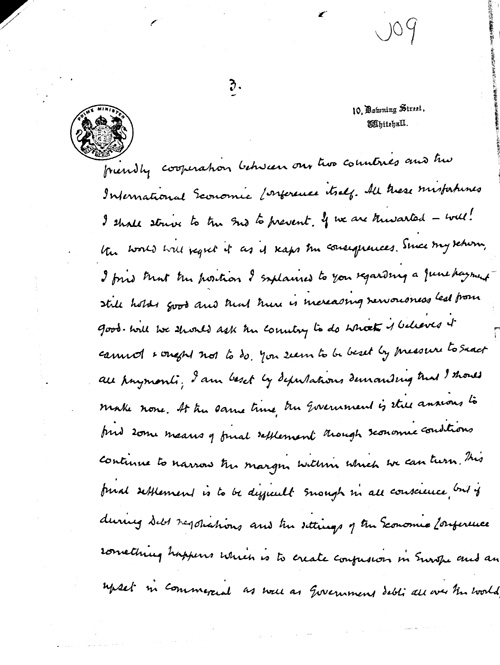 J09
3.
PRIME MINISTER
10, Downing Street,
Whitehall.
friendly cooperation between our two countries and the
International Economic Conference itself. All these misfortunes
I shall strive to the end to prevent. If we are thwarted – well!
the world will regret it as it reaps the consequences. Since my return,
I find that the position I explained to you regarding a June payment
still holds good and that there is increasing nervousness lest from
good-will we should ask the country to do what it believes it
cannot & ought not to do. You seem to be beset by pressure to exact
all payments; I am beset by deputations demanding that I should
make none. At the same time, the Government is still anxious to
find some means of final settlement though economic conditions
continue to narrow the margin within which we can turn. This
final settlement is to be difficult enough in all conscience, but if
during Debt negotiations and the sittings of the Economic Conference
something happens which is to create confusion in Europe and an
upset in commercial as well as Government debts all over the world,